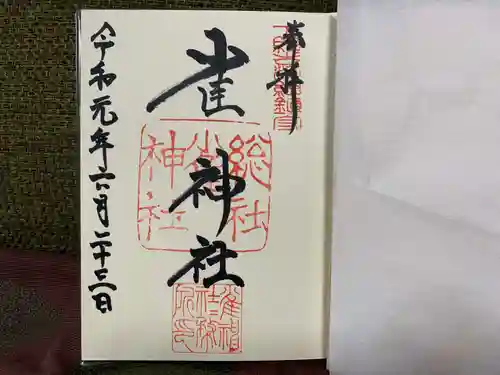 奉拝
雀神社
総社
雀
神社
令和元年六月二十三日
雀神社社務所印